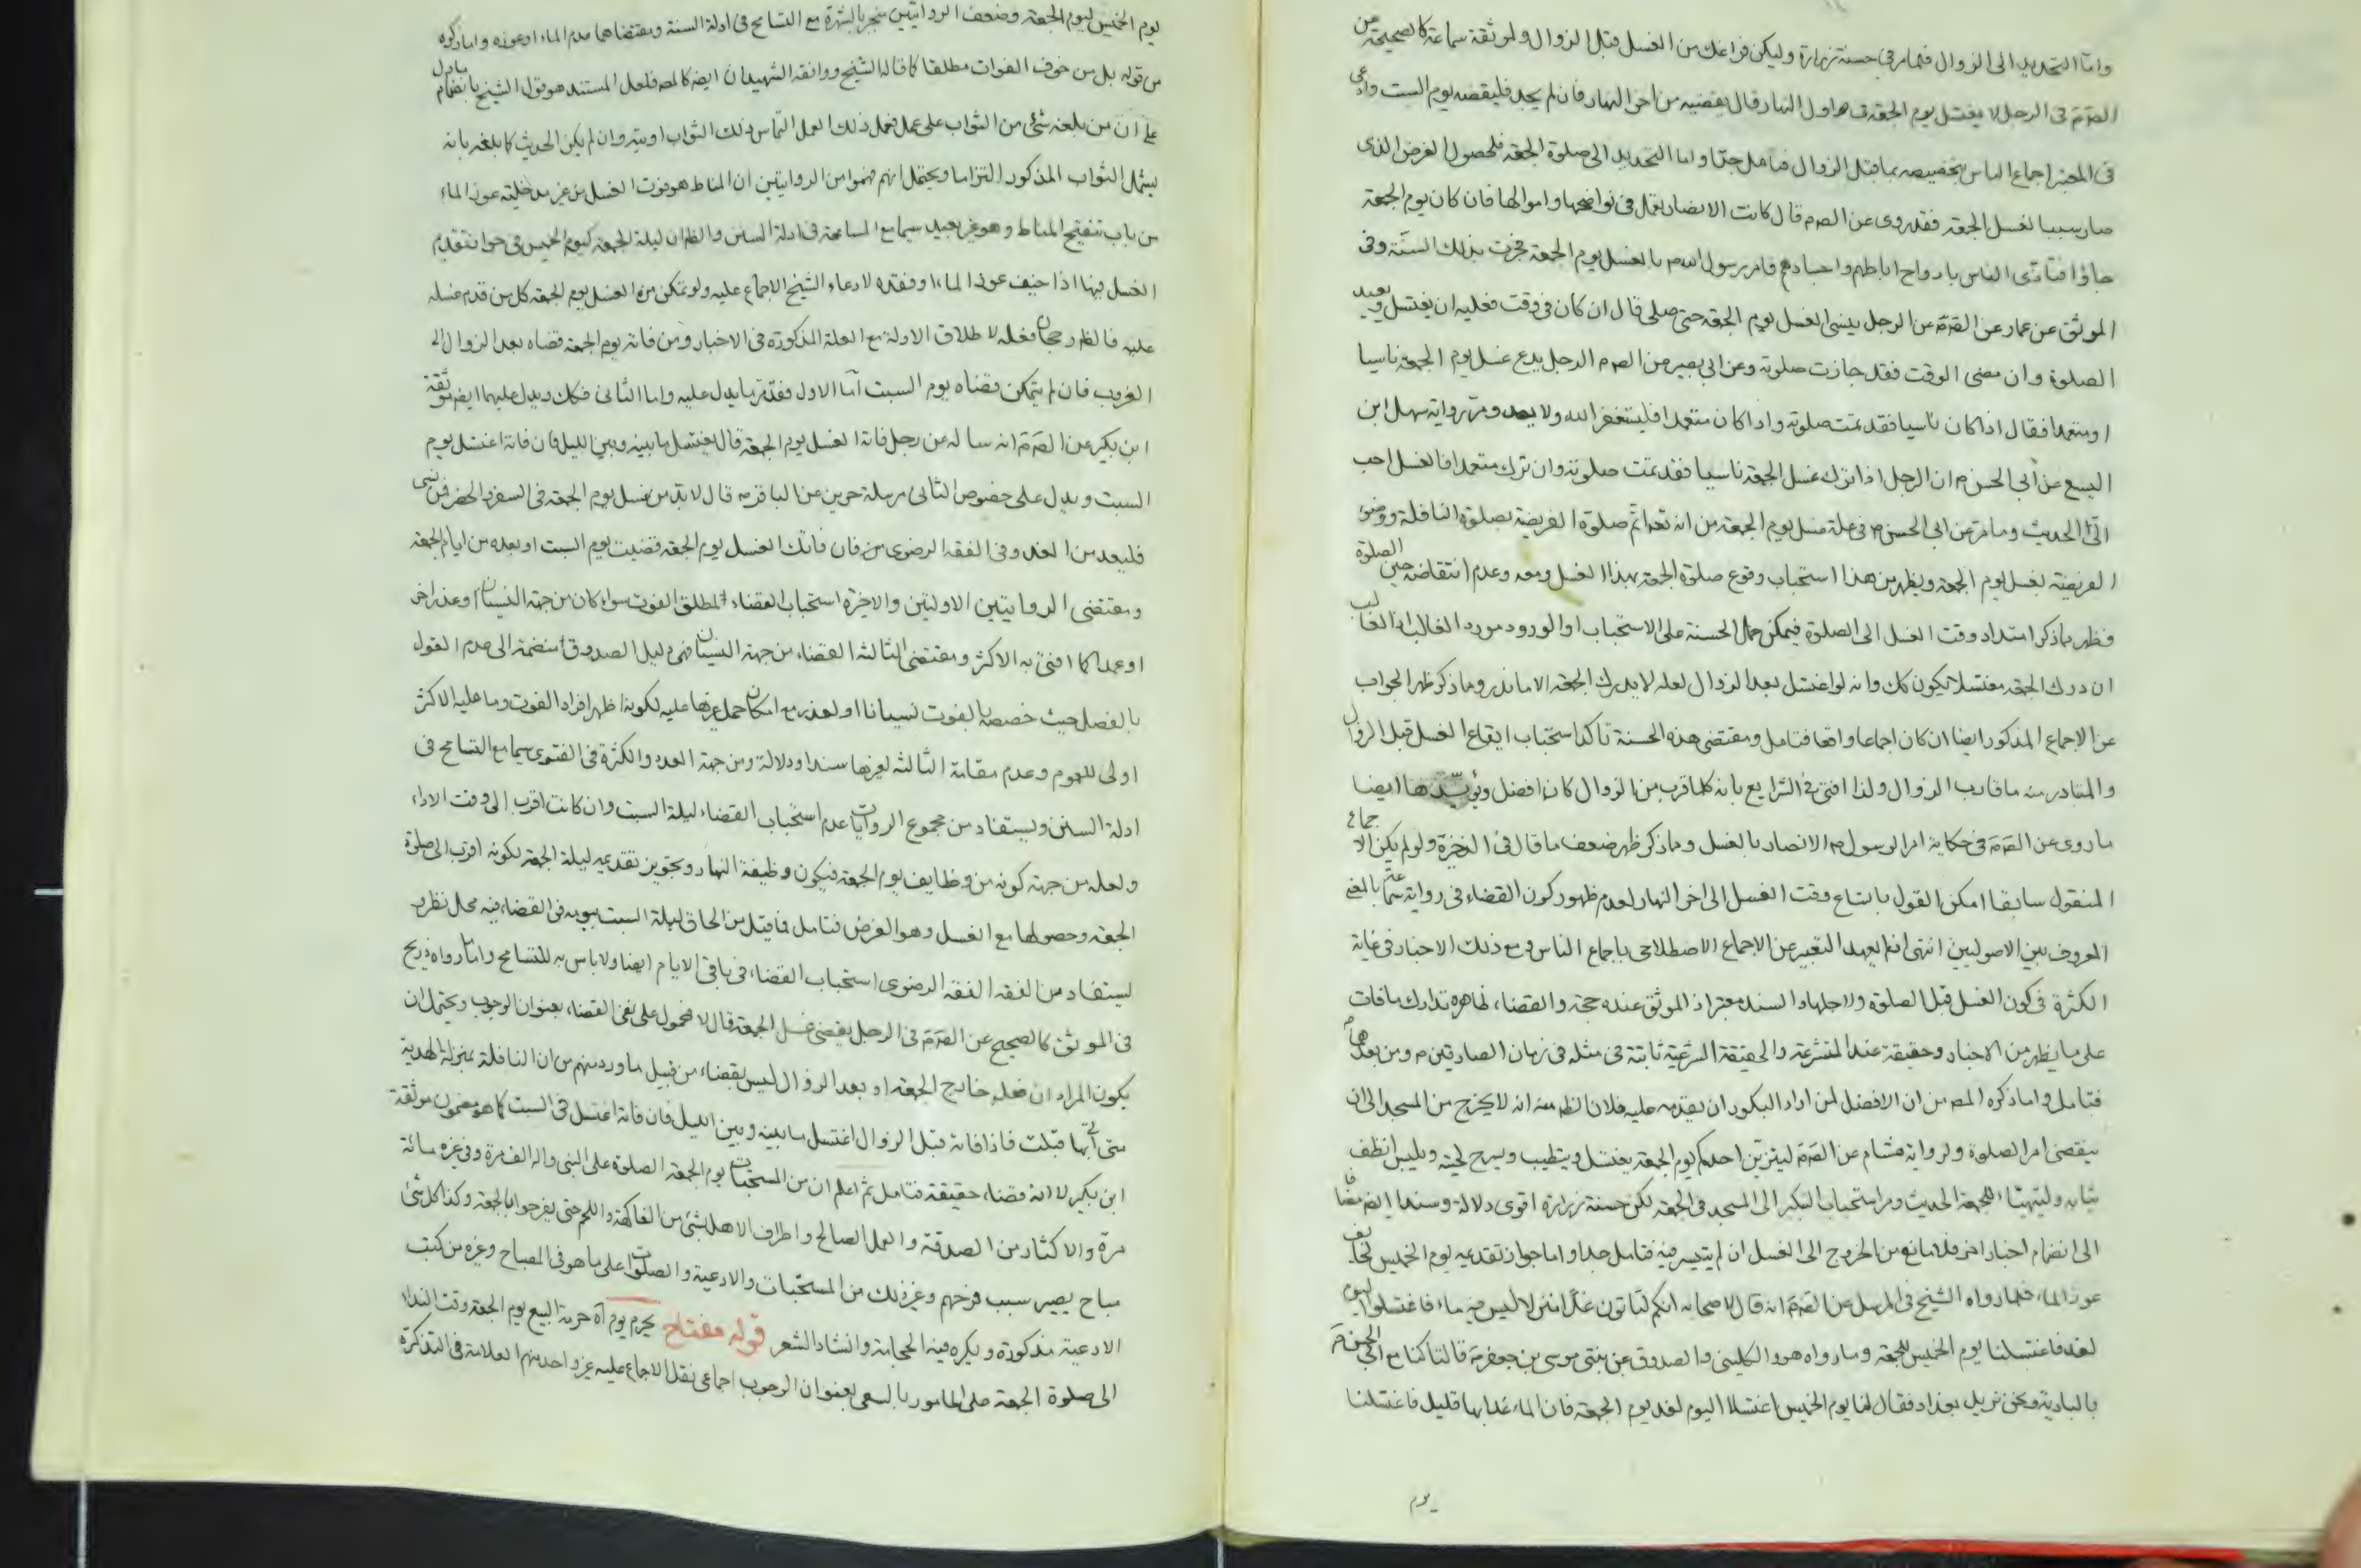 واما التحديد الى الزوال فلما مر في حسنة زرارة وليكن فراغك من الغسل قبل الزوال ولموثقة سماعة كالصحيحة عن
الصّ مَ في الرجل لا يغتسل يوم الجمعة في اول النهار قال يقضيه من اخر النهار فان لم يجد فليقضه يوم السبت وادعى
في المعتبر اجماع الناس بتخصيصه بما قبل الزوال فتامل جدّا واما التحديد الى صلوة الجمعة فلحصول الغرض الذي
صار سببا لغسل الجمعة فقد روى عن الصم قال كانت الانصار تعمل في نواضحها واموالها فان كان يوم الجمعة
جاؤا فتاذى الناس بارواح اباطهم واجسادهم فامر رسول الله ص بالغسل يوم الجمعة فجرت بذلك السنّة وفي
الموثق عن عمار عن الصّ مَ عن الرجل ينسى الغسل يوم الجمعة حتى صلى قال ان كان في وقت فعليه ان يغتسل ويعيد
الصلوة وان مضى الوقت فقد جازت صلوته وعن ابي بصير عن الصم الرجل يدع غسل يوم الجمعة ناسيا
او متعمدا فقال اذا كان ناسيا فقد تمت صلوته واذا كان متعمدا فليستغفر الله ولا يعد ومرّ رواية سهل ابن
اليسع عن ابي الحسن م ان الرجل اذا ترك غسل الجمعة ناسيا فقد تمت صلوته وان ترك متعمدا فالغسل احب
الىّ الحديث وما مر عن ابي الحسن م في علة غسل يوم الجمعة من انه تعه اتم صلوة الفريضة بصلوة النافلة ووضوء
الفريضة بغسل يوم الجمعة ويظهر من هذا استحباب وقوع صلوة الجمعة بهذا الغسل ومعه وعدم انتقاضه حين الصلوة
فظهر بما ذكر امتداد وقت الغسل الى الصلوة فيمكن حمل الحسنة على الاستحباب او الورود مورد الغالب اذ الغالب
ان درك الجمعة مغتسلا يكون كك وانه لو اغتسل بعد الزوال لعله لا يدرك الجمعة الا ما ندر وما ذكر ظهر الجواب
عن الاجماع المذكور ايضا ان كان اجماعا واقعا فتامل ومقتضى هذه الحسنة تاكد استحباب ايقاع الغسل قبل الزوال
والمتبادر منه ما قارب الزوال ولذا افتى في الشرايع بانه كلما قرب من الزوال كان افضل ويؤيدها ايضا
ما روى عن الصّ مَ في حكاية امر الرسول ص الانصار بالغسل وما ذكر ظهر ضعف ما قال في الذخيرة ولو لم يكن الاجماع
المنقول سابقا امكن القول باتساع وقت الغسل الى اخر النهار لعدم ظهور كون القضاء في رواية سماعة بالمعنى
المعروف بين الاصوليين انتهى اذ لم يعهد التعبير عن الاجماع الاصطلاحي باجماع الناس ومع ذلك الاخبار في غاية
الكثرة في كون الغسل قبل الصلوة ولاجلها والسند معتبر اذ الموثق عنده حجة والقضاء ظاهره تدارك ما فات
على ما يظهر من الاخبار وحقيقة عند المتشرعة والحقيقة الشرعية ثابتة في مثله في زمان الصادقين م ومن بعدهما
فتامل واما ذكره المصه من ان الافضل لمن اراد البكور ان يقدمه عليه فلان الظم منه انه لا يخرج من المسجد الى ان
ينقضي امر الصلوة ولرواية هشام عن الصّ مَ ليتزين احدكم يوم الجمعة يغتسل ويتطيب ويسرح لحيته ويلبس انظف
ثيابه وليتهيّأ للجمعة الحديث ومر استحباب التبكير الى المسجد في الجمعة لكن حسنة زرارة اقوى دلالة وسندا ايضه مضافا
الى انضمام اخبار اخر فلا مانع من الخروج الى الغسل ان لم يتيسر فيه فتامل جدا واما جواز تقديمه يوم الخميس لخائف
عوز الماء فلما رواه الشيخ في المرسل عن الصّ مَ انه قال لاصحابه انكم لتاتون غدًا منزلا ليس فيه ماء فاغتسلوا اليوم
لغد فاغتسلنا يوم الخميس للجمعة وما رواه هو والكليني والصدوق عن بنتي موسى بن جعفر مَ قالتا كنا مع ابي الحسن مَ
بالبادية ونحن نريد بغداد فقال لنا يوم الخميس اغتسلا اليوم لغد يوم الجمعة فان الماء غدا بها قليل فاغتسلنا
يوم
يوم الخميس ليوم الجمعة وضعف الروايتين منجبر بالشهرة مع التسامح في ادلة السنة ومقتضاهما عدم الماء او عوزه واما ذكره
من قوله بل من خوف الفوات مطلقا كما قاله الشيخ ووافقه الشهيدان ايضه كالمصه فلعل المستند هو قول الشيخ بانضمام ما دل
على ان من بلغه شئ من الثواب على عمل فعمل ذلك العمل التماس ذلك الثواب اوتيه وان لم يكن الحديث كما بلغه بانه
يشمل الثواب المذكور التزاما ويحتمل انهم فهموا من الروايتين ان المناط هو فوت الغسل من غير مدخلية عوز الماء
من باب تنقيح المناط وهو غير بعيد سيما مع المسامحة في ادلة السنن والظم ان ليلة الجمعة كيوم الخميس في جواز تقديم
الغسل فيها اذا خيف عوز الماء او فقده لادعاء الشيخ الاجماع عليه ولو تمكن من الغسل يوم الجمعة كل من قدم غسله
عليه فالظم رجحان فعله لاطلاق الادلة مع العلة المذكورة في الاخبار ومن فاته يوم الجمعة قضاه بعد الزوال الى
الغروب فان لم يتمكن قضاه يوم السبت اما الاول فقد مر ما يدل عليه واما الثاني فكك ويدل عليهما ايضه موثقة
ابن بكير عن الصّ مَ انه ساله عن رجل فاته الغسل يوم الجمعة قال يغتسل ما بينه وبين الليل فان فاته اغتسل يوم
السبت ويدل على خصوص الثاني مرسلة حريز عن الباقر م قال لا بد من غسل يوم الجمعة في السفر والحضر فمن نسى
فليعد من الغد وفي الفقه الرضوي من فان فاتك الغسل يوم الجمعة قضيت يوم السبت او بعده من ايام الجمعة
ومقتضى الروايتين الاولتين والاخيرة استحباب القضاء لمطلق الفوت سواء كان من جهة النسيان او عذر اخر
او عمدا كما افتى به الاكثر ومقتضى الثالثة القضاء من جهة النسيان فهو دليل الصدوق منضمة الى عدم القول
بالفصل حيث خصصه بالفوت نسيانا او لعذر مع امكان حمل غيرها عليه لكونه اظهر افراد الفوت وما عليه الاكثر
اولى للعموم وعدم مقاومة الثالثة لغيرها سندا ودلالة ومن جهة العدد والكثرة في الفتوى سيما مع التسامح في
ادلة السنن ويستفاد من مجموع الروايات عدم استحباب القضاء ليلة السبت وان كانت اقرب الى وقت الاداء
ولعله من جهة كونه من وظايف يوم الجمعة فيكون وظيفة النهار وتجويز تقديمه ليلة الجمعة لكونه اقرب الى صلوة
الجمعة وحصولها مع الغسل وهو الغرض فتامل فما قيل من الحاق ليلة السبت بيومه في القضاء فيه محل نظر و
يستفاد من الفقه الفقه الرضوي استحباب القضاء في باقي الايام ايضا ولا باس به للتسامح واما ما رواه ذريح
في الموثق كالصحيح عن الصّ مَ في الرجل يقضي غسل الجمعة قال لا فمحمول على نفي القضاء بعنوان الوجوب ويحتمل ان
يكون المراد ان فعله خارج الجمعة او بعد الزوال ليس بقضاء من قبيل ما ورد منهم من ان النافلة بمنزلة الهدية
متى اتى بها قبلت فاذا فاته قبل الزوال اغتسل ما بينه وبين الليل فان فاته اغتسل في السبت كما هو مضمون موثقة
ابن بكير لا انه قضاء حقيقة فتامل ثم اعلم ان من المستحبات يوم الجمعة الصلوة على النبي واله الف مرة وفي غيره مائة
مرة والاكثار من الصدقة والعمل الصالح واطراف الاهل بشئ من الفاكهة واللحم حتى يفرحوا بالجمعة وكذا كل شئ
مباح يصير سبب فرحهم وغير ذلك من المستحبات والادعية والصلوات على ما هو في المصباح وغيره من كتب
الادعية مذكورة ويكره فيه الحجامة وانشاد الشعر قوله مفتاح يحرم يوم آه حرمة البيع يوم الجمعة وقت النداء
الى صلوة الجمعة على المامور بالسعي بعنوان الوجوب اجماعي نقل الاجماع عليه غير واحد منهم العلامة في التذكرة